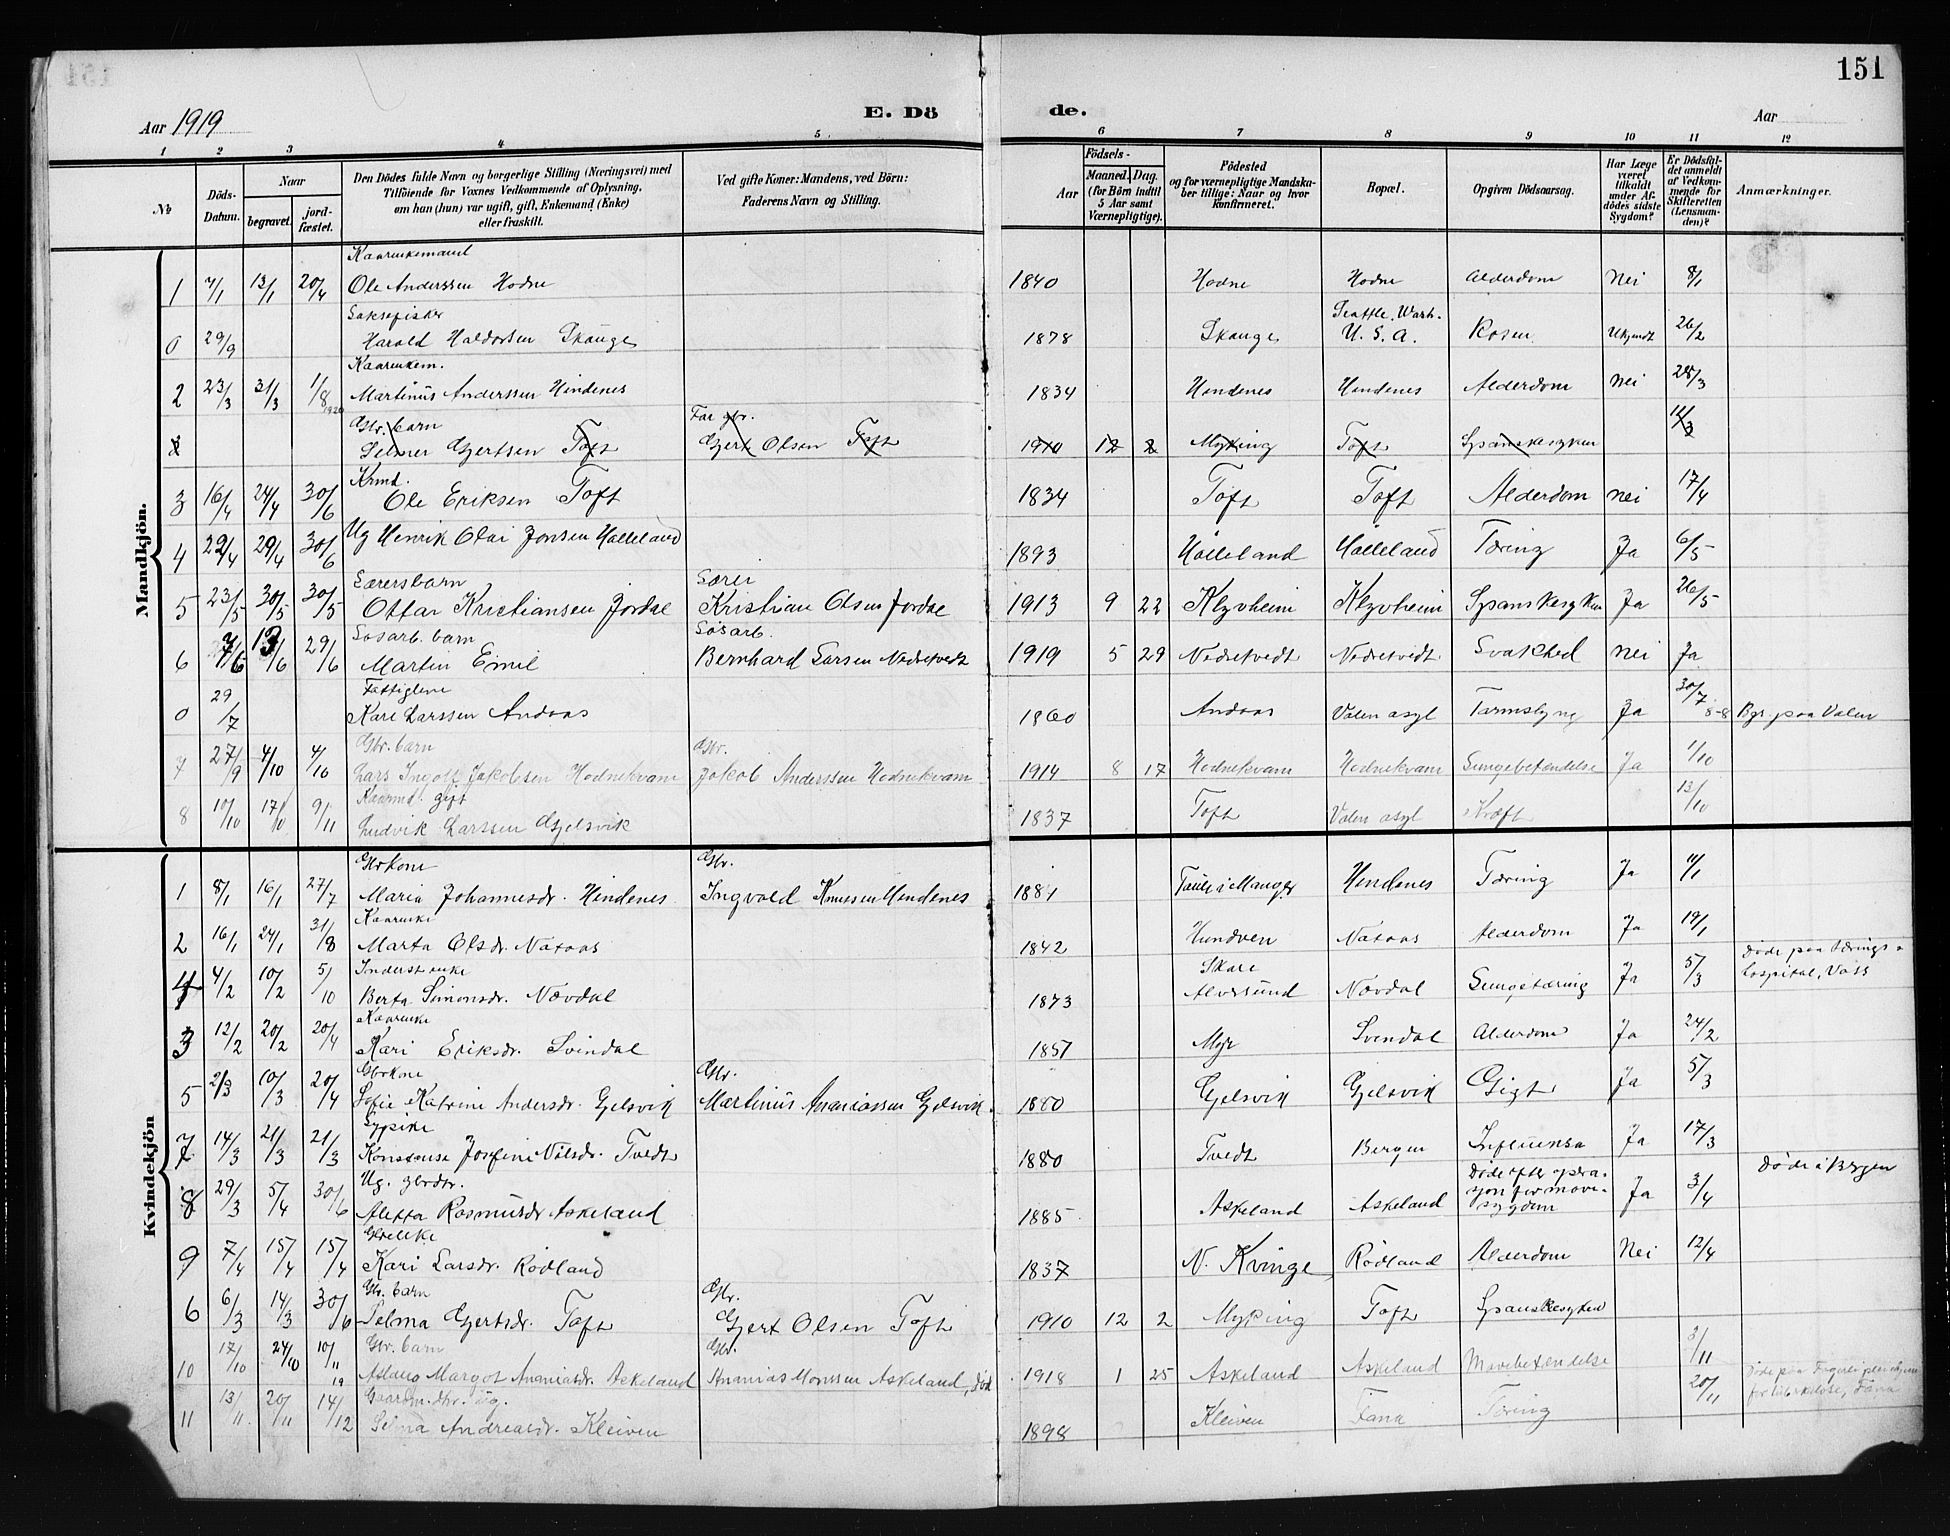 151
Aar 1919 E. Dö de. Aar
1 2 3 4 5 6 7 8 9 10 11 12
№ Döds-Datum. Naar begravet. jord-fæstet. Den Dödes fulde Navn og borgerlige Stilling (Næringsvei) med Tilföiende for Voxnes Vedkommende af Oplysning, om han (hun) var ugift, gift, Enkemand (Enke) eller fraskilt. Ved gifte Koner: Mandens, ved Börn: Faderens Navn og Stilling. Födsels- Aar Maaned. Dag. (for Börn indtil 5 Aar samt Værnepligtige). Födested og for værnepligtige Mandska-ber tillige: Naar og hvor konfirmeret. Bopæl. Opgiven Dödsaarsag. Har Læge været tilkaldt under Af-dödes sidste Sygdom? Er Dödsfal-det anmeldt af Vedkom-mende for Skifteretten (Lensman-den)? Anmærkninger.
Mandkjön.
Kaarenkemand
1 7/1 13/1 20/4 Ole Anderssen Hodne 1840 Hodne Hodne Alderdom Nei 8/1
Laksefisker Seattle, Wash.
0 29/9 Harald Haldorsen Skauge 1878 Skauge U.S.A. Rosen Ukjendt 26/2
Kaarenkem.
2 23/3 31/3 1/8 1920 Martinus Anderssen Hindenes 1834 Hindenes Hindenes Alderdom Nei 28/3
Gbr. barn Far gbr.
Selmer Gjertsen Toft Gjert Olsen Toft 1910 12 2 Myking Toft Spanskesyken 11/3
Krmd.
3 16/4 24/4 30/6 Ole Eriksen Toft 1834 Toft Toft Alderdom nei 17/4
4 22/4 29/4 30/6 Ug Henrik Olai Jonsen Halleland 1893 Halleland Halleland Tæring Ja 6/5
Lærersbarn Lærer
5 23/5 30/5 30/5 Ottar Kristiansen Jordal Kristian Olsen Jordal 1913 9 22 Kleivheim Kleivheim Spanskesyken Ja 26/5
Løsarb. barn Løsarb.
6 7/6 13/6 29/6 Martin Emil Bernhard Larsen Nedretvedt 1919 5 29 Nedretvedt Nedretvedt Svakhed nei Ja
Fattiglem
0 29/7 Kare Larssen Andaas 1860 Andaas Valen asyl Tarmslyng Ja 30/7 8-8 Bgr. paa Valen
Gbr. barn Gbr.
7 27/9 4/10 4/10 Lars Ingolf Jakobsen Hodnekvam Jakob Anderssen Hodnekvam 1914 8 17 Hodnekvam Hodnekvam Lungebetendelse Ja 1/10
Kaarmd. gift
8 10/10 17/10 9/11 Ludvik Larssen Gjelsvik 1837 Toft Valen asyl Kræft 13/10
Kvindekjön
Gbrkone Gbr.
1 8/1 16/1 27/7 Maria Johannesdr. Hindenes Ingvald Knutsen Hindenes 1881 Toule i Manger Hindenes Tæring Ja 11/1
Kaarenke
2 16/1 24/1 31/8 Marta Olsdr. Nataas 1842 Hundven Nataas Alderdom Ja 19/1
Inderst enke Skare Døde paa Tærings-
4 4/2 10/2 5/10 Berta Simonsdr. Nævdal 1873 Alversund Nævdal Lungetæring Ja 5/3 hospital, Voss
Kaarenke
3 12/2 20/2 20/4 Kari Eriksdr. Svindal 1851 Myr Svendal Alderdom Ja 24/2
Gbrkone Gbr.
5 2/3 10/3 20/4 Sofie Katrine Andersdr. Gjelsvik Martinus Ananiassen Gjelsvik. 1880 Gjelsvik Gjelsvik Gigt Ja 5/3
Sypike
7 14/3 21/3 21/3 Konstanse Josefine Nilsdr. Tvedt 1880 Tvedt Bergen Influensa Ja 17/3
Ug. gbrdtr. Døde i Bergen
8 29/3 5/4 30/6 Aletta Rasmusdr. Askeland 1885 Askeland Askeland Døde efter opera-sjon for mave-sygdom Ja 3/4
Gbrenke
9 7/4 15/4 15/4 Kari Larsdr. Rødland 1837 N. Kvinge Rødland Alderdom Nei 12/4
Gbr. barn Gbr.
6 6/3 14/3 30/6 Selma Gjertsdr. Toft Gjert Olsen Toft 1910 12 2 Myking Toft Spanskesyken
Gbr. barn Gbr.
10 17/10 24/10 10/11 19 Aslaug Margot Ananiasdr. Askeland Ananias Monssen Askeland, død 1918 1 25 Askeland Askeland Mavebetendelse 3/11
Gaardm.dtr. ug. Døde paa
11 13/11 20/11 14/12 Selma Andreasdr. Kleiven 1898 Kleiven Fana Tæring 20/11 Fana